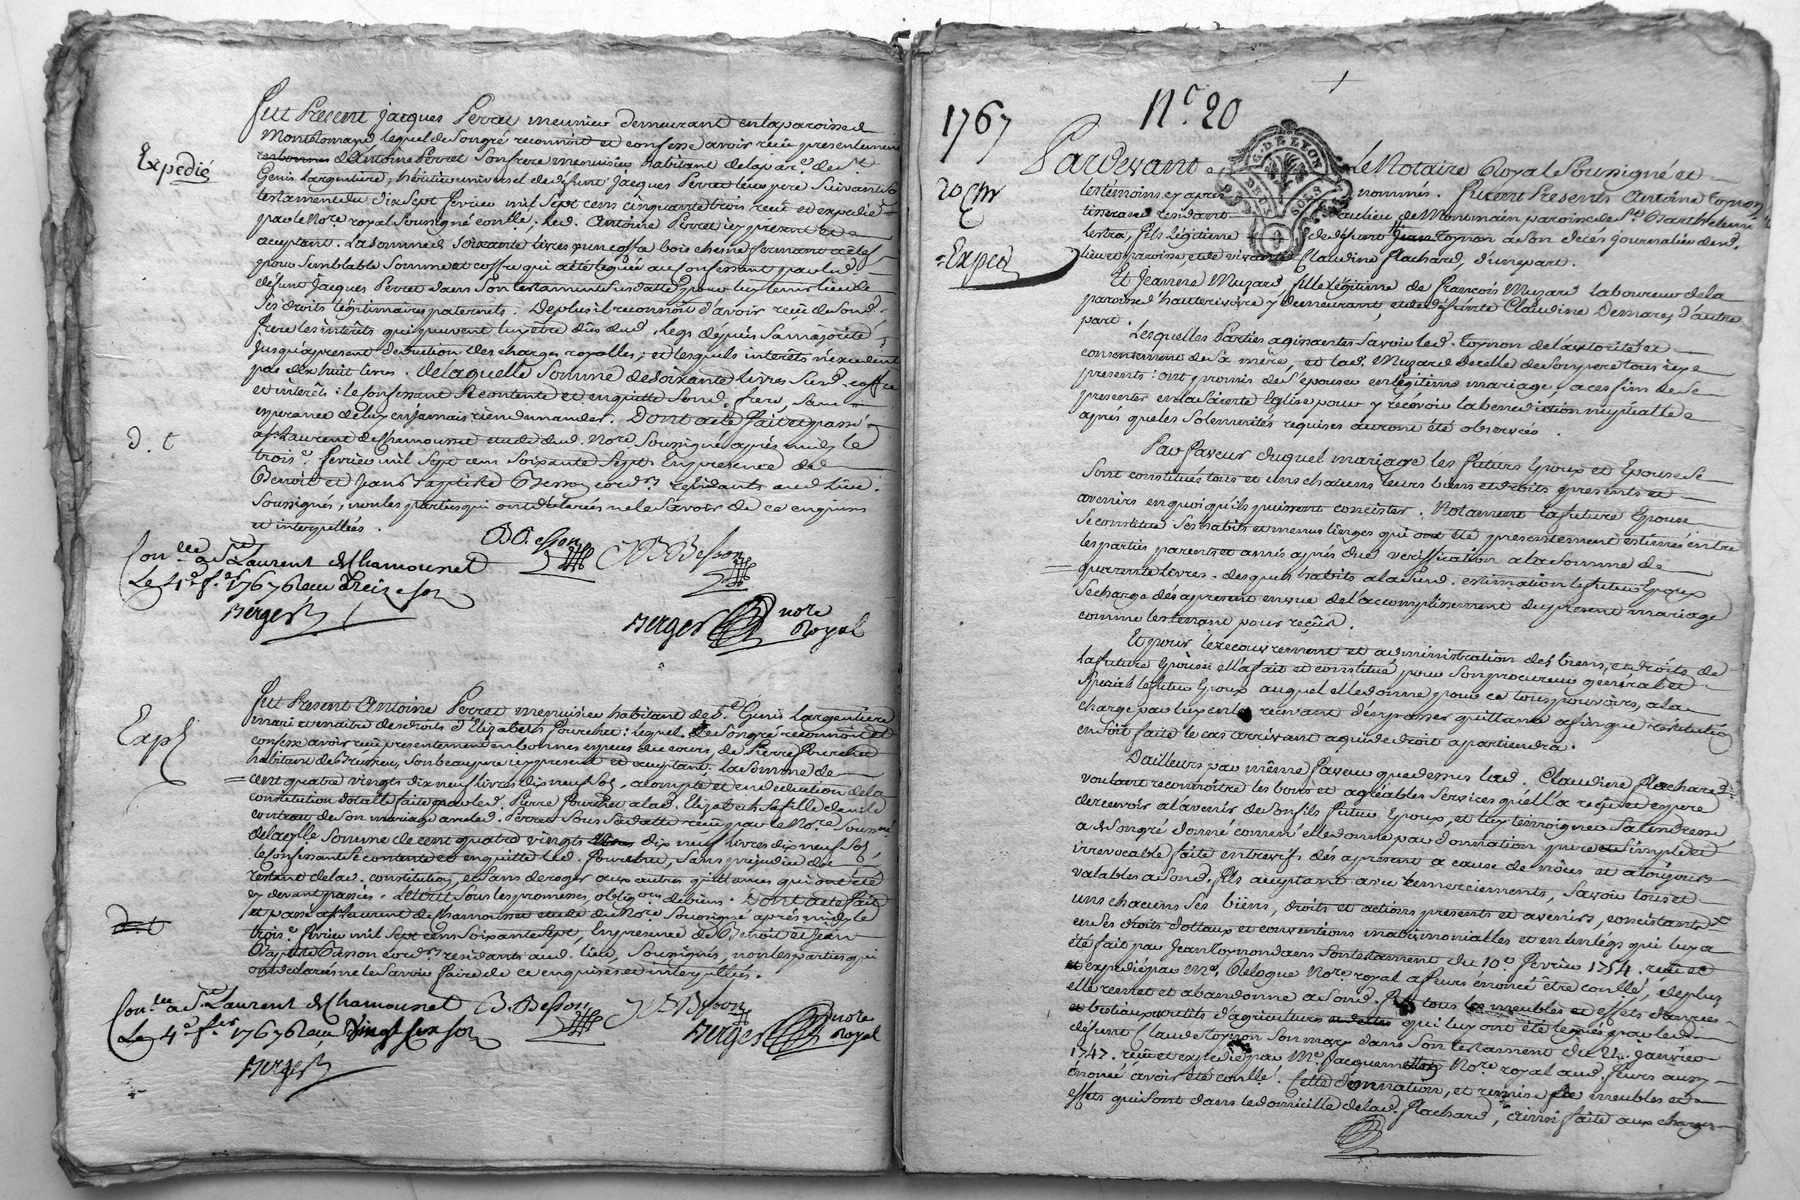 Expedié
d. t
Fut Present Jacques Perret meunier demeurant en la paroisse de
Montromand lequel de son gré reconnoit et confesse avoir receu presentement
d'Antoine Perret son frere menuisier habitant de la par.e de St
Genis Largentiere, héritier universel de défunt Jacques Perret leur pere suivant son
testament du dix sept fevrier mil sept cens cinquante trois receu et expedié
par le No.re royal soussigné conllé, led. Antoine Perret icy present et
acceptant. La somme de soixante livres, un coffre bois chesne fermant à clef
pour semblable somme et coffre qui a été legué au confessant par led.
défunt Jacques Perret dans son testament susdatté pour luy tenir lieu de
ses droits légitimaires paternels. De plus il reconnoit d'avoir receu de sond.
frere les intérêts qui peuvent luy être dûs dud. legs depuis sa majorité
jusqu'a present deduction des charges royalles, et lesquels intérêts n'excedent
pas dix huit livres. De laquelle somme de soixante livres susd. coffre
et intérêts : le confessant se contente et en quitte sond. frere, sans
esperance de luy en jamais rien demander. Dont acte fait et passé
a St Laurent de Chamousset etude dud. Nore soussigné après midy le
trois.e fevrier mil sept cens soixante sept. En presence de
Benoit et Jean Baptiste Besson cord.rs residants aud. lieu.
Soussignés, non les parties qui ont déclarés ne le savoir de ce enquis
et interpellées.
B. Besson J B Besson
Con.llé a St Laurent de Chamousset
Le 4e f.er 1767 receu treize sols
Berger
Berger nore Royal
Expé
d t
Fut Present Antoine Perret menuisier habitant de St Genis Largentiere
mari et maitre des droits d'Elizabeth Pourchet : lequel de son gré reconnoit et
confesse avoir receu presentement en bonnes especes du cours, de Pierre Pourchet
habitant de son beaupere icy present et acceptant. La somme de
cent quatre vingts dix neuf livres dix neuf sols, a compte et en deduction de la
constitution dotalle faite par led. Pierre Pourchet a lad. Elizabeth sa fille dans le
contrat de son mariage avec led. Perret sous sa datte receu par le No.re soussigné
de laquelle somme de cent quatre vingts dix neuf livres dix neuf sols,
le confessant se contente et en quitte led. Pourchet, sans préjudice du
restant de lad. constitution, et sans deroger aux autres quittances qui ont été
cy devant passées. Le tout sous les promesses, oblig.ons de biens. Dont acte fait
et passé a St Laurent de Chamousset etude du No.re soussigné après midy le
trois.e fevrier mil sept cens soixante sept, En presence de Benoit et Jean
Baptiste Besson cord.rs residants aud. lieu, soussignés, non les parties qui
ont declarés ne le savoir faire de ce enquises et interpellées.
Con.llé a St Laurent de Chamousset B. Besson J B Besson
Le 4e f.er 1767 receu vingt six sols
Berger
Berger nore Royal
1767
N.o 20
G. DE LYON
DEUX SOLS
Expé
Pardevant le Notaire Royal soussigné et
les temoins cy après nommés. Furent Presents Antoine Toynon
tisserand résidant au lieu de Montmain paroisse de St Barthelemi
lestra, fils légitime de défunt Jean Toynon a son décès journalier dud.
lieu et paroisse, et de vivante Claudine Flachard, d'une part.
Et Jeanne Muzard fille légitime de François Muzard laboureur de la
paroisse d'hauterivoire y demeurant, et de défunte Claudine Demares, d'autre
part.
Lesquelles Parties agissantes savoir led. Toynon de l'autorité et
consentement de sa mère, et lad. Muzard de celle de son pere tous icy
presents : ont promis de s'épouser en légitime mariage a ces fins de se
presenter en la Sainte Eglise pour y recevoir la benediction nuptialle
après que les solemnités requises auront été observées.
En Faveur duquel mariage les futurs Epoux et Epouse se
sont constitués tous et uns chacuns leurs biens et droits presents et
avenirs en quoi qu'ils puissent concister. Notament la future Epouse
se constitue ses habits et menus linges qui ont été presentement estimés entre
les parties parents et amis après due verification a la somme de
quarente livres. desquels habits a la susd. estimation le futur Epoux
se charge des a present en vue de l'accomplissement du present mariage
comme les tenant pour reçûs.
Et pour le recouvrement et administration des biens, et droits de
la future Epouse ell'a fait et constitué pour son procureur général et
special le futur Epoux auquel elle donne pour ce tous pouvoirs, a la
charge par luy en les recevant d'en passer quittance afin que restitution
en soit faite le cas arrivant a qui de droit apartiendra.
D'ailleurs par même faveur que dessus lad. Claudine Flachard
voulant reconnoître les bons et agréables services qu'ell'a reçu et espere
de recevoir a l'avenir de son fils futur Epoux, et luy temoigner sa tendresse
a de son gré donné comm'elle donne par donnation pure et simple et
irrevocable faite entrevifs dés a present a cause de nôces et a toujours
valables a sond. fils acceptant avec remerciements, savoir tous et
uns chacuns ses biens, droits et actions presents et avenirs, concistants
en ses droits dottaux et conventions matrimonialles et en un legs qui luy a
été fait par Jean Toynon dans son testament du 10e fevrier 1754. receu et
expedié par Me Delogue Nore royal a feurs énoncé être conllé, de plus
elle remet et abandonne a sond. fils tous les meubles et effets danrées
et bestiaux outils d'agriculture qui luy ont été legués par led.
défunt Claude Toynon son mary dans son testament du 21. Janvier
1747. receu et expedié par Me Jacquemetton Nore royal aud. feurs aussy
énoncé avoir été conllé. Cette donnation, et remise de meubles et
effets qui sont dans le domicille de lad. Flachard, ainsi faite aux charges